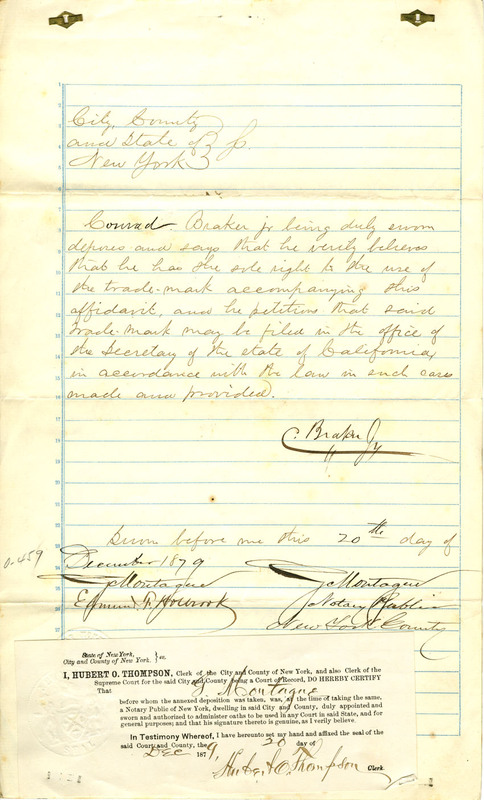 City, County
and State of } S.
New York
Conrad Braker jr being duly sworn
deposes and says that he verily believes
that he has the sole right to the use of
the trade-mark accompanying this
affidavit, and he petitions that said
trade-mark may be filed in the office of
the Secretary of the state of California,
in accordance with the law in such cases
made and provided.
C. Braker Jr
Sworn before me this 20th day of
0.459
December 1879
Montague
Montague
Edmund F. Holbrook
Notary Public
New York County
State of New York,
City and County of New York. } ss.
I, HUBERT O. THOMPSON, Clerk of the City and County of New York, and also Clerk of the
Supreme Court for the said City and County being a Court of Record, DO HEREBY CERTIFY
That Montague
before whom the annexed deposition was taken, was, at the time of taking the same,
a Notary Public of New York, dwelling in said City and County, duly appointed and
sworn and authorized to administer oaths to be used in any Court in said State, and for
general purposes; and that his signature thereto is genuine, as I verily believe.
In Testimony Whereof, I have hereunto set my hand and affixed the seal of the
said Court and County, the 20 day of
Dec 1879,
Hubert O. Thompson Clerk.